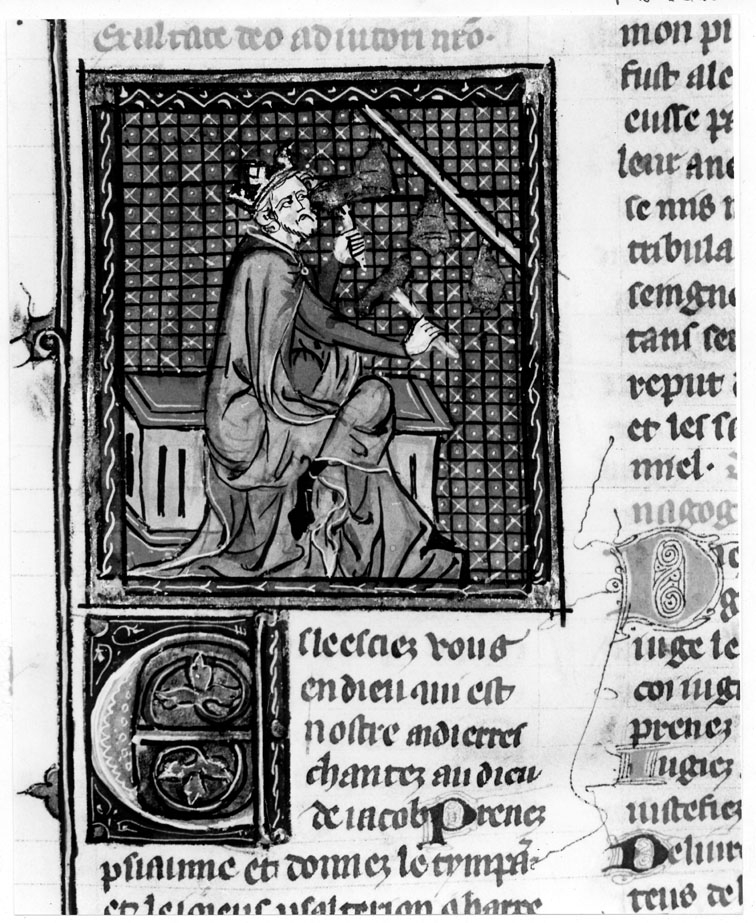 Exultate deo adiutori nr̃o.
Esleesciez vous
en dieu qui est
nostre aidierres
chantez au dieu
de iacob Prenez
psiaume et donnez le tympā-
et le ioieus psalterion o harpe
mon pi
fust ale
eusse pa
leur ane
se mis
tribula
seingne
tans ser
reput
et les so
miel.
nagog
iuge le
coi iug
prenez
Iugiez
iustefiez
Deliure
teus de